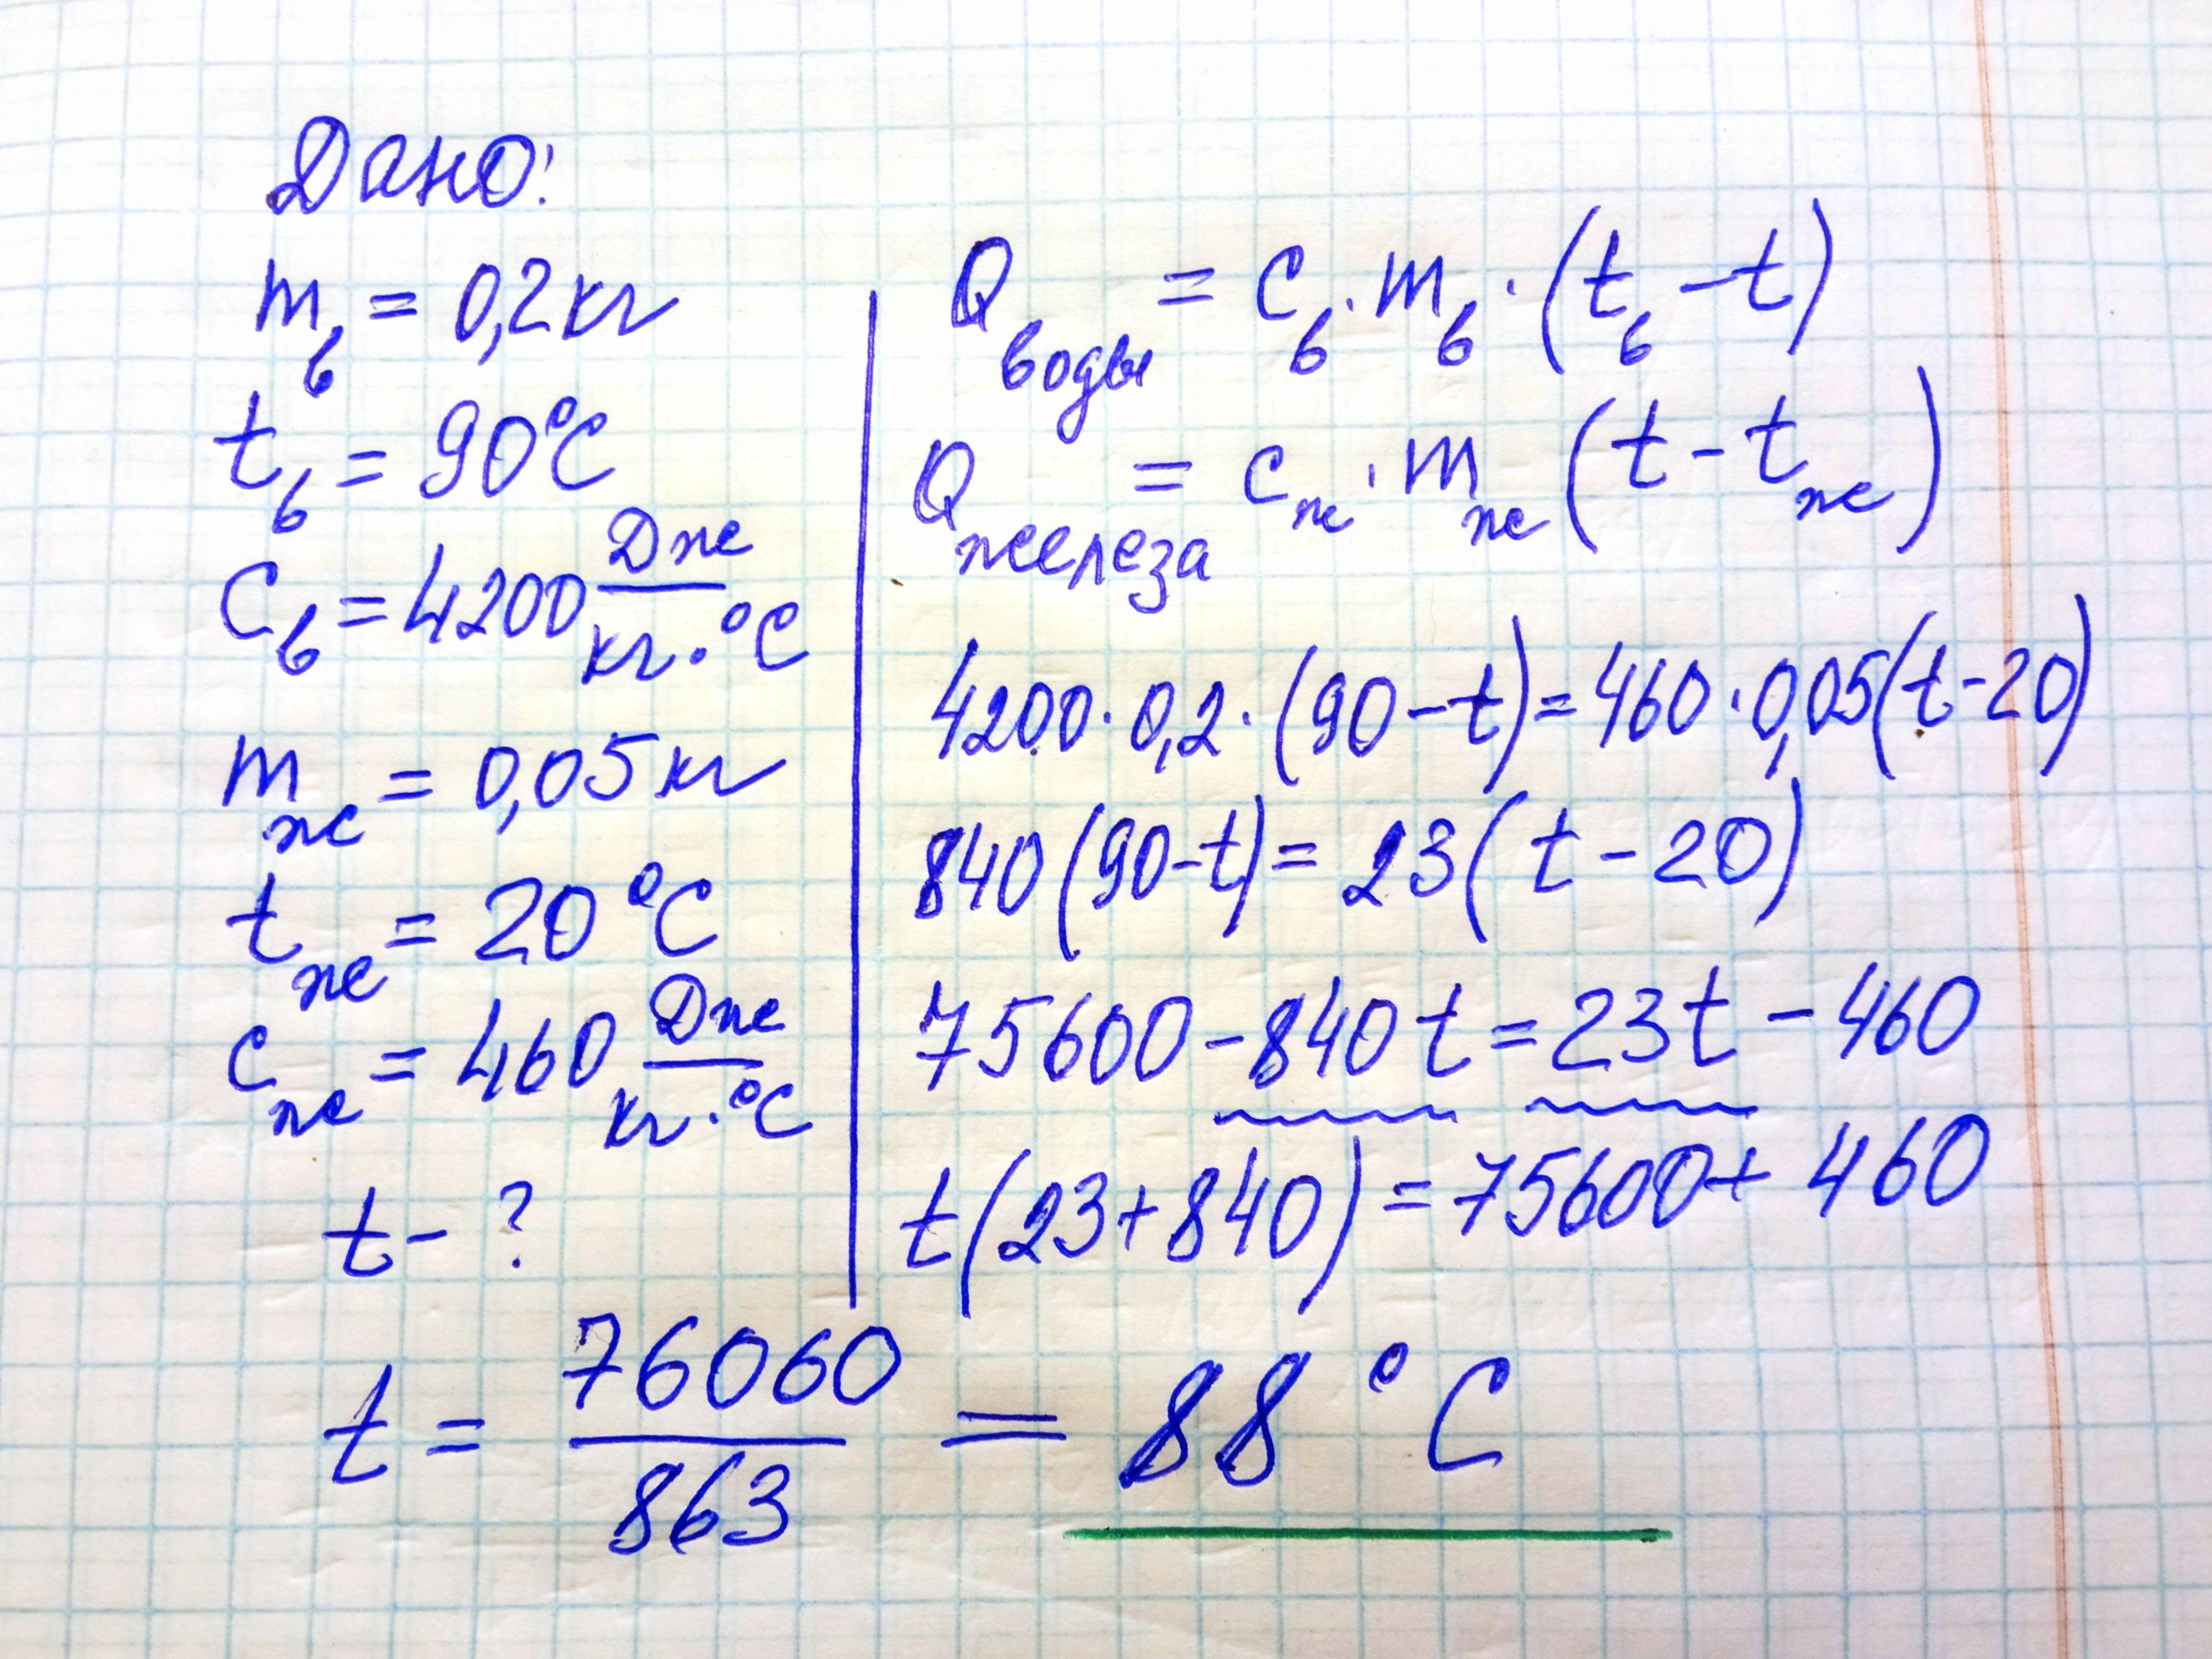 Дано:
m в = 0,2 кг
t в = 90°C
C в = 4200 Дж / кг·°C
m ж = 0,05 кг
t ж = 20°C
c ж = 460 Дж / кг·°C
t - ?
Q воды = c в · m в · (t в - t)
Q железа = c ж · m ж (t - t ж)
4200 · 0,2 · (90 - t) = 460 · 0,05 (t - 20)
840 (90 - t) = 23 (t - 20)
75600 - 840 t = 23 t - 460
t (23 + 840) = 75600 + 460
t = 76060 / 863 = 88 °C